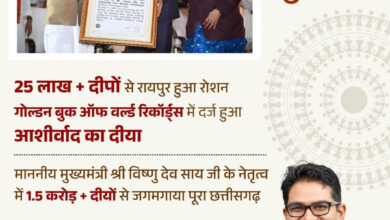 25 लाख + दीपों से रायपुर हुआ रोशन
गोल्डन बुक ऑफ वर्ल्ड रिकॉर्ड्स में दर्ज हुआ
आशीर्वाद का दीया
माननीय मुख्यमंत्री श्री विष्णु देव साय जी के नेतृत्व
में 1.5 करोड़ + दीयों से जगमगाया पूरा छत्तीसगढ़